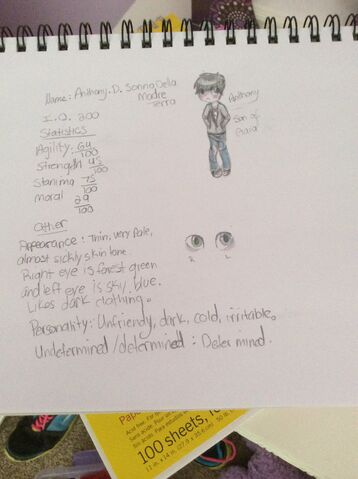 Name: Anthony. D. Sonna Della
Madre
Terra
I.Q. 200
Statistics
Agility: 64/100
Strength 43/100
Stanima 75/100
Moral 29/100
Anthony
Son of
Gaia
Other
Appearance: Thin, very Pale,
almost sickly skin tone.
Right eye is forest green
and left eye is sky blue.
Likes dark clothing.
R L
Personality: Unfriendly, dark, cold, irritable.
Undetermined/determined: Determined.
Acid free. For
Sans acide. Pour
Sin ácido. Para
100 sheets,
11 in. x 14 in. (27.9 x 35.6 cm)